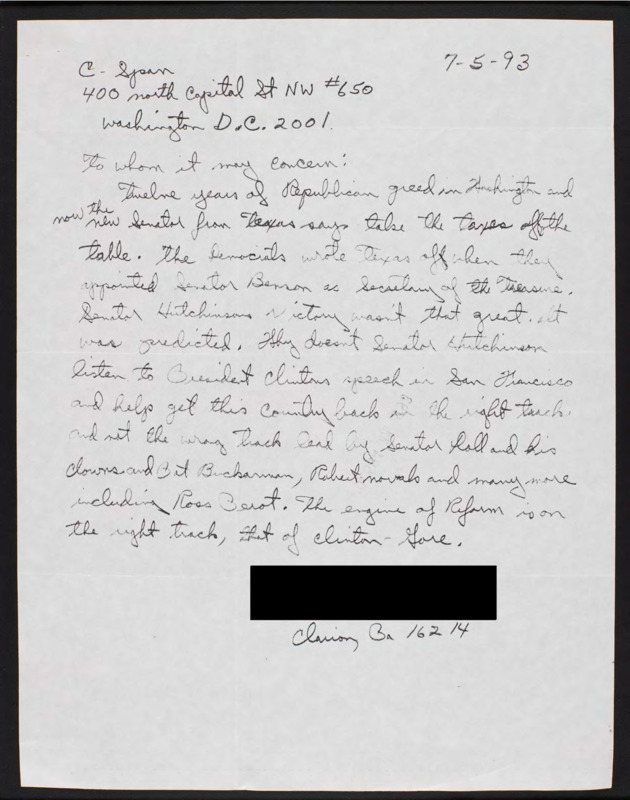 7-5-93
C-Span
400 north Capital St NW #650
Washington D.C. 2001.
To whom it may concern:
Twelve years of Republican greed in Washington and
now the new Senator from Texas says take the taxes off the
table. The Democrats wrote Texas off when they
appointed Senator Benson as Secretary of the Treasure.
Senator Hutchinsons victory wasn't that great. It
was predicted. Why doesn't Senator Hutchinson
listen to President Clintons speech in San Francisco
and help get this country back on the right track.
and not the wrong track lead by Senator Doll and his
clowns and Pat Buckarman, Robert novak and many more
including Ross Perot. The engine of Reform is on
the right track, that of Clinton-Gore.
Clarion, Pa 16214